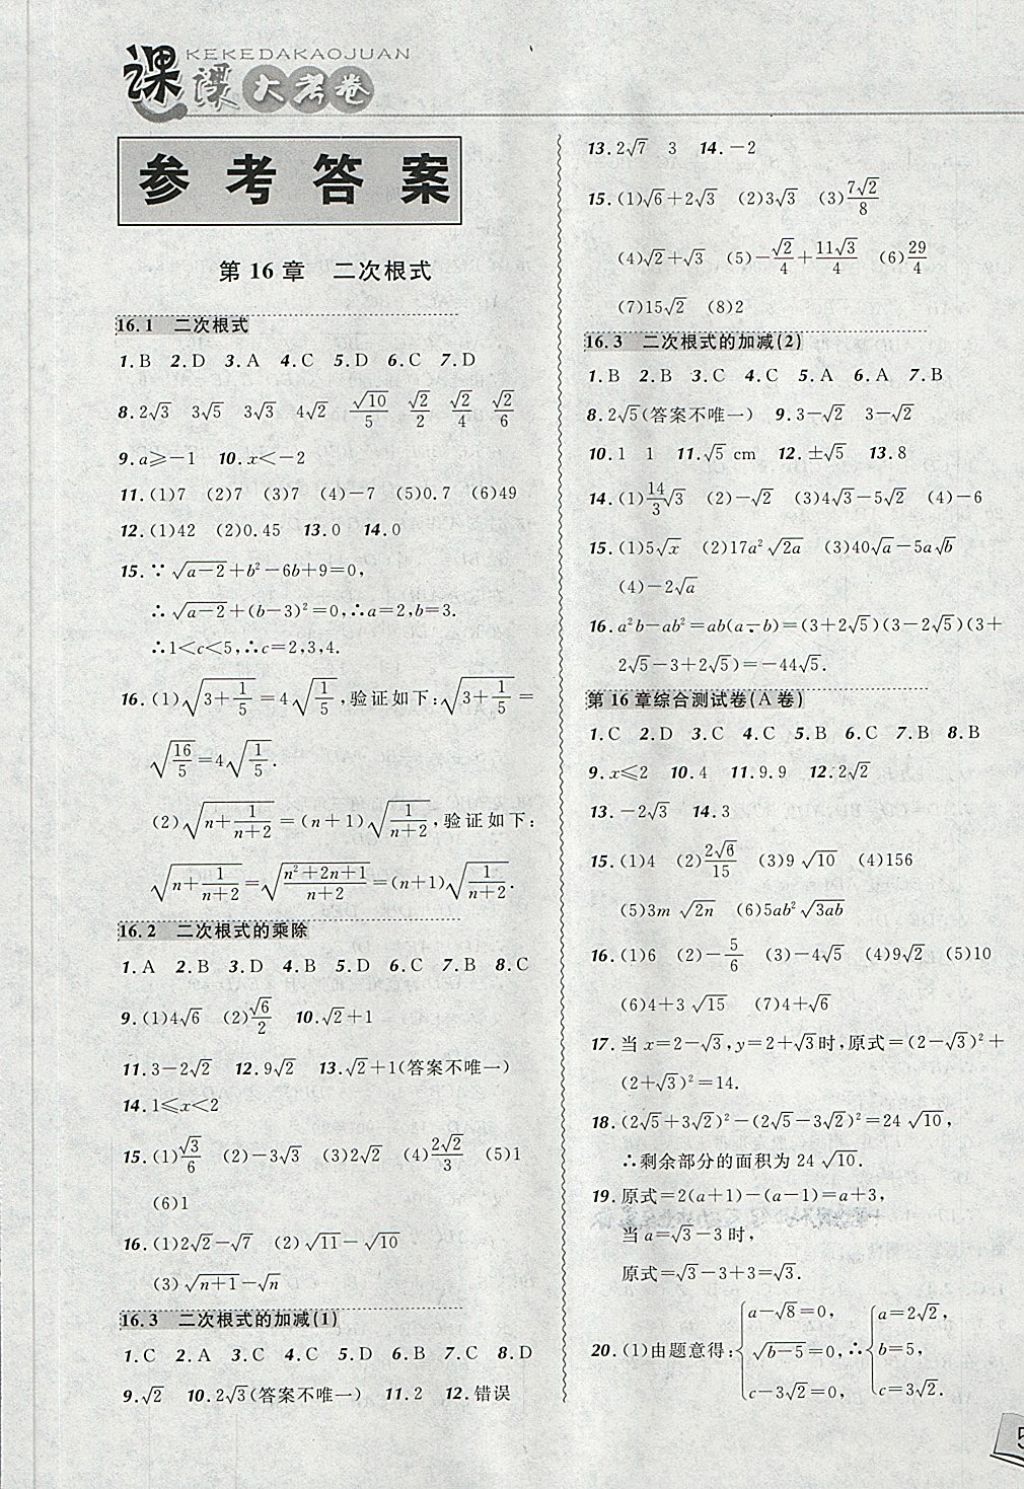 KEKEDAKAOJUAN
课课大考卷
参考答案
第16章 二次根式
16.1 二次根式
1.B 2.D 3.A 4.C 5.D 6.C 7.D
8.2√3 3√5 3√3 4√2 √10/5 √2/2 √2/4 √2/6
9.a≥-1 10.x<-2
11.(1)7 (2)7 (3)7 (4)-7 (5)0.7 (6)49
12.(1)42 (2)0.45 13.0 14.0
15.∵√(a-2)+b²-6b+9=0,
∴√(a-2)+(b-3)²=0,∴a=2,b=3.
∴1<c<5,∴c=2,3,4.
16.(1)√(3+1/5)=4√(1/5),验证如下:√(3+1/5)=
√(16/5)=4√(1/5).
(2)√(n+1/(n+2))=(n+1)√(1/(n+2)),验证如下:
√(n+1/(n+2))=√((n²+2n+1)/(n+2))=(n+1)√(1/(n+2)).
16.2 二次根式的乘除
1.A 2.B 3.D 4.B 5.D 6.C 7.B 8.C
9.(1)4√6 (2)√6/2 10.√2+1
11.3-2√2 12.9√2 13.√2+1(答案不唯一)
14.1≤x<2
15.(1)√3/6 (2)-3√3 (3)2√2 (4)2√2/3 (5)1
(6)1
16.(1)2√2-√7 (2)√11-√10
(3)√(n+1)-√n
16.3 二次根式的加减(1)
1.C 2.A 3.C 4.C 5.D 6.B 7.C 8.D
9.√2 10.2√3(答案不唯一) 11.2 12.错误
13.2√7 3 14.-2
15.(1)√6+2√3 (2)3√3 (3)7√2/8
(4)√2+√3 (5)-√2/4+11√3/4 (6)29/4
(7)15√2 (8)2
16.3 二次根式的加减(2)
1.B 2.B 3.C 4.C 5.A 6.A 7.B
8.2√5(答案不唯一) 9.3-√2 3-√2
10.1 1 11.√5 cm 12.±√5 13.8
14.(1)14/3√3 (2)-√2 (3)4√3-5√2 (4)-6
15.(1)5√x (2)17a²√(2a) (3)40√a-5a√b
(4)-2√a
16.a²b-ab²=ab(a-b)=(3+2√5)(3-2√5)(3+
2√5-3+2√5)=-44√5.
第16章综合测试卷(A卷)
1.C 2.D 3.C 4.C 5.B 6.C 7.B 8.B
9.x≤2 10.4 11.9.9 12.2√2
13.-2√3 14.3
15.(1)4 (2)2√6/15 (3)9√10 (4)156
(5)3m√(2n) (6)5ab²√(3ab)
16.(1)6 (2)-5/6 (3)-4√5 (4)9√2 (5)10
(6)4+3√15 (7)4+√6
17.当x=2-√3,y=2+√3时,原式=(2-√3)²+
(2+√3)²=14.
18.(2√5+3√2)²-(2√5-3√2)²=24√10,
∴剩余部分的面积为24√10.
19.原式=2(a+1)-(a-1)=a+3,
当a=√3-3时,
原式=√3-3+3=√3.
20.(1)由题意得:{a-√8=0, √(b-5)=0, c-3√2=0, ∴{a=2√2, b=5, c=3√2.
5